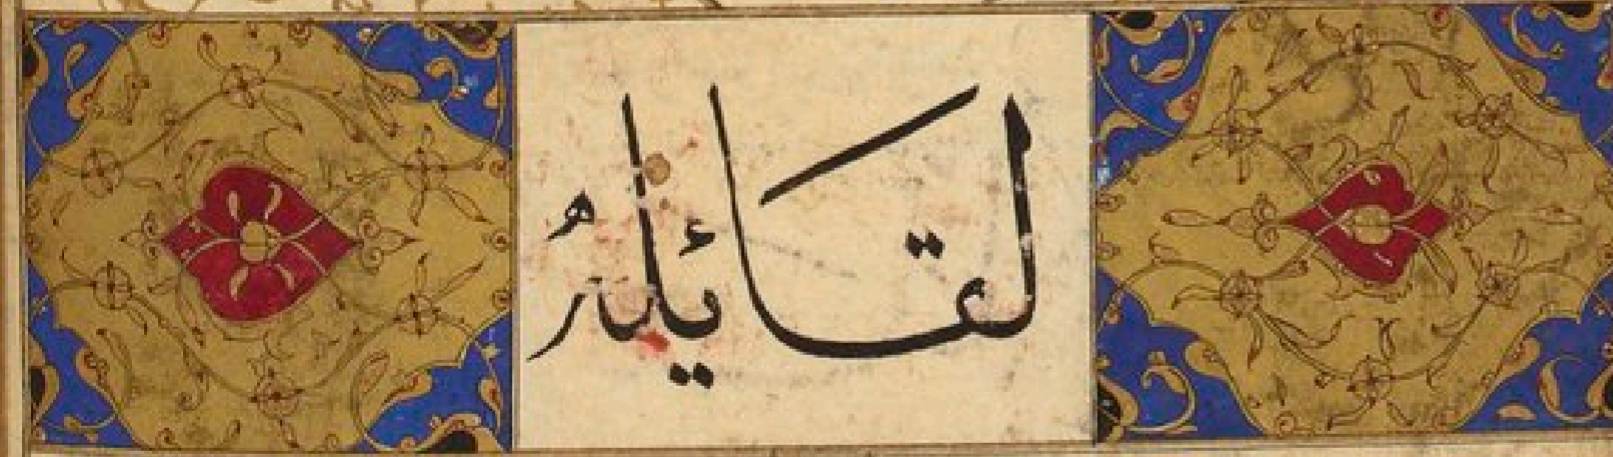 لقَائلهُ